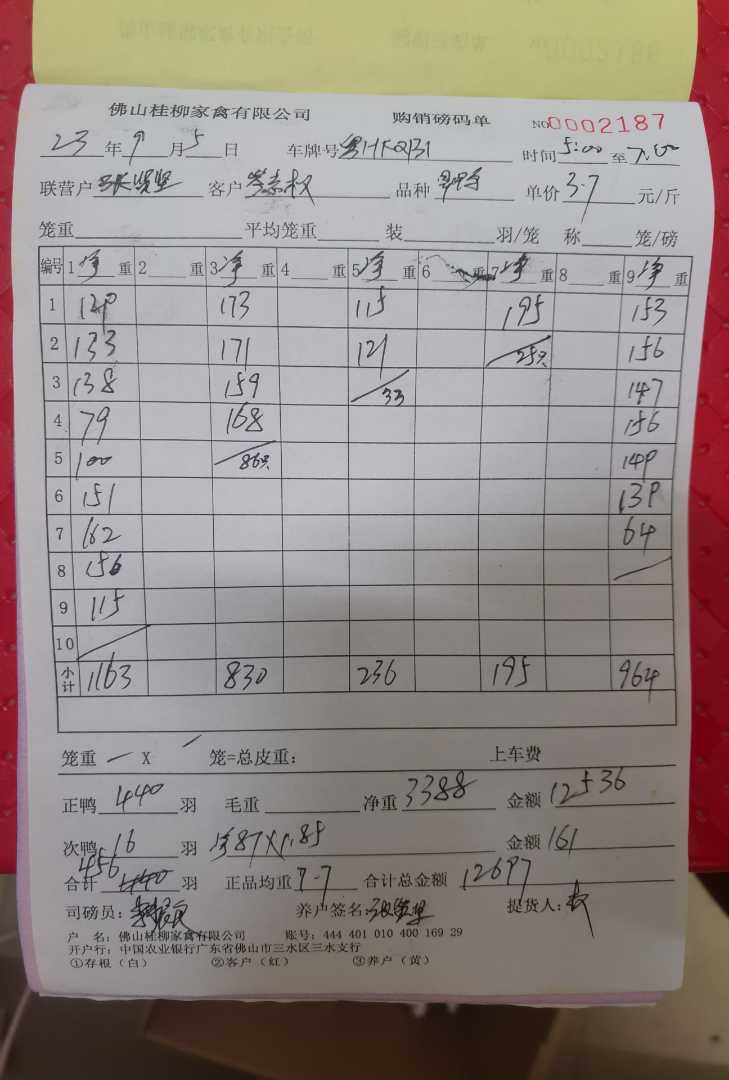 佛山桂柳家禽有限公司 购销磅码单 NO 0002187
23年9月5日 车牌号 时间5:00至7:00
联营户 客户 品种 单价3.7元/斤
笼重 平均笼重 装 羽/笼 称 笼/磅
编号 1净重 2 重 3净重 4 重 5净重 6 重 7净重 8 重 9净重
1 120 173 115 195 153
2 133 171 121 25只 156
3 138 159 33 147
4 79 168 156
5 100 86只 149
6 151 139
7 162 64
8 156
9 115
10
小计 1163 830 236 195 964
笼重 — X — 笼=总皮重: 上车费
正鸭 440 羽 毛重 净重 3388 金额 12536
次鸭 16 羽 净87X1.85 金额 161
合计 456 440 羽 正品均重 7.7 合计总金额 12697
司磅员: 养户签名: 提货人:
户 名: 佛山桂柳家禽有限公司 账号: 444 401 010 400 169 29
开户行: 中国农业银行广东省佛山市三水区三水支行
①存根(白) ②客户(红) ③养户(黄)